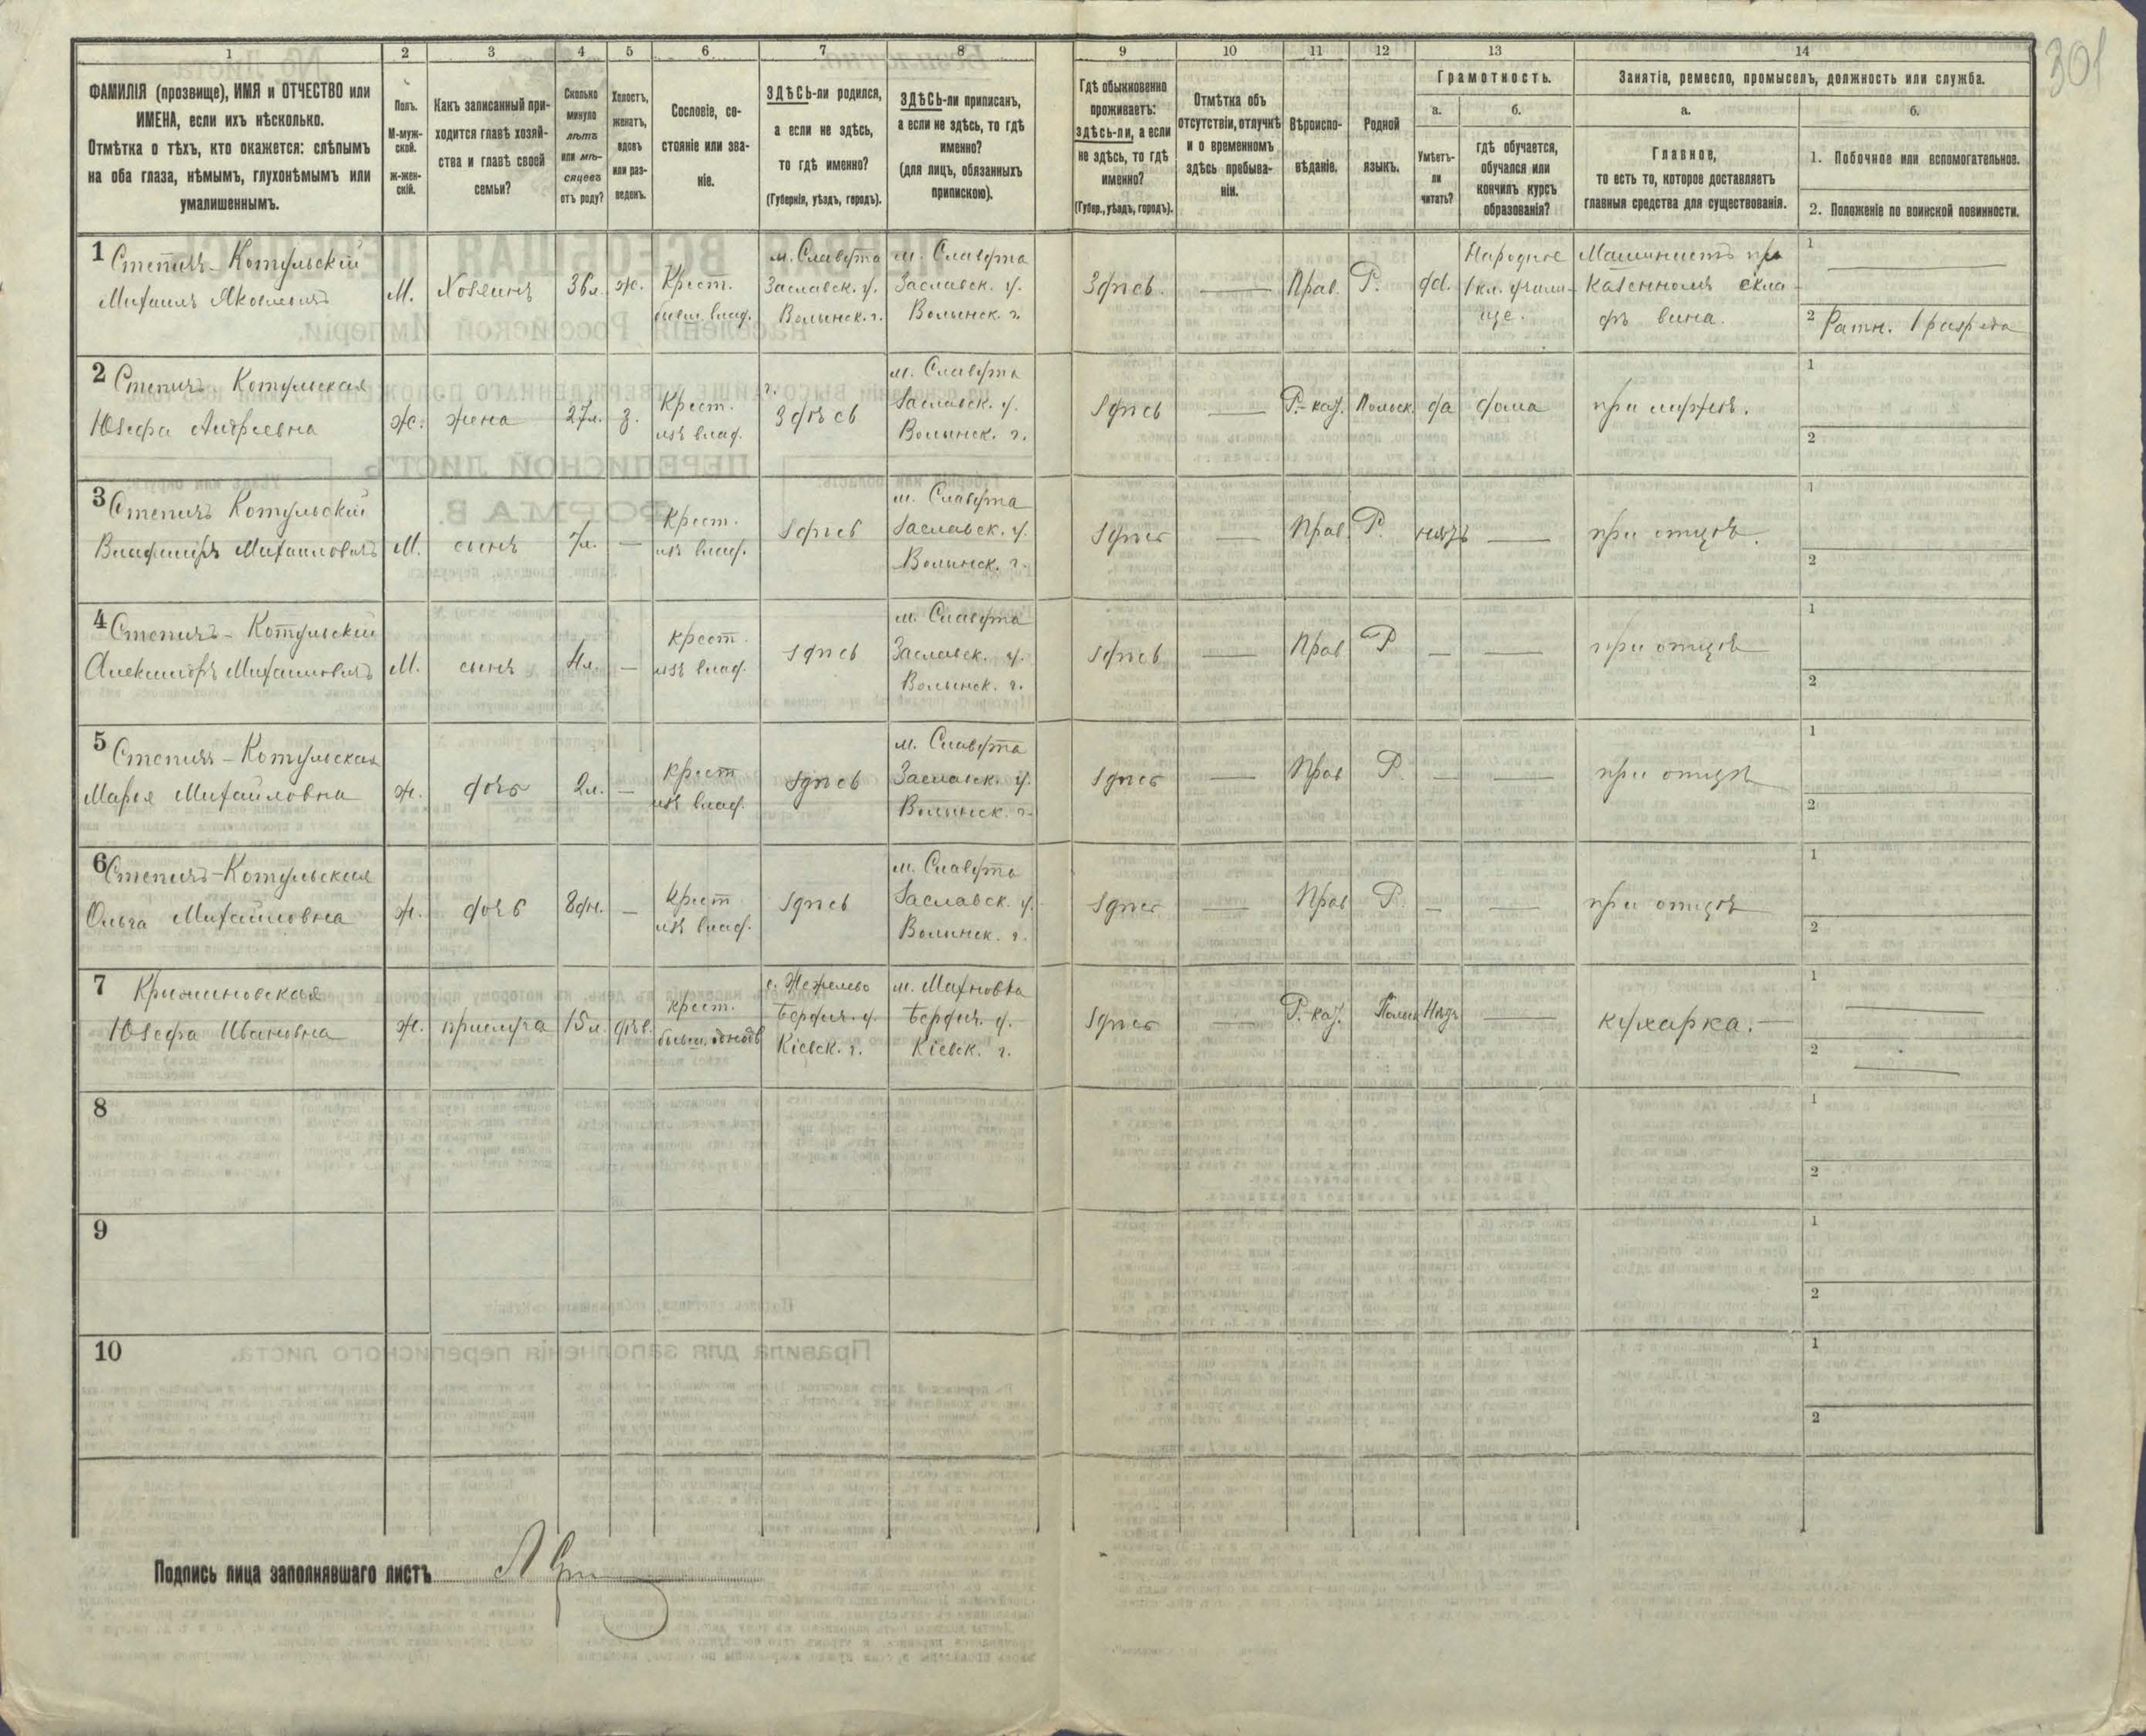 301
1
2
3
4
5
6
7
8
9
10
11
12
13
14
ФАМИЛІЯ (прозвище), ИМЯ и ОТЧЕСТВО или
ИМЕНА, если ихъ нѣсколько.
Отмѣтка о тѣхъ, кто окажется: слѣпымъ
на оба глаза, нѣмымъ, глухонѣмымъ или
умалишеннымъ.
Полъ.
М-муж-
ской.
Ж-жен-
скій.
Какъ записанный при-
ходится главѣ хозяй-
ства и главѣ своей
семьи?
Сколько
минуло
лѣтъ
или мѣ-
сяцевъ
отъ роду?
Холостъ,
женатъ,
вдовъ
или раз-
веденъ.
Сословіе, со-
стояніе или зва-
ніе.
ЗДѢСЬ-ли родился,
а если не здѣсь,
то гдѣ именно?
(Губернія, уѣздъ, городъ).
ЗДѢСЬ-ли приписанъ,
а если не здѣсь, то гдѣ
именно?
(для лицъ, обязанныхъ
припискою).
Гдѣ обыкновенно
проживаетъ:
здѣсь-ли, а если
не здѣсь, то гдѣ
именно?
(Губер., уѣздъ, городъ).
Отмѣтка объ
отсутствіи, отлучкѣ
и о временномъ
здѣсь пребыва-
ніи.
Вѣроиспо-
вѣданіе.
Родной
языкъ.
Грамотность.
а.
Умѣетъ-
ли
читать?
б.
гдѣ обучается,
обучался или
кончилъ курсъ
образованія?
Занятіе, ремесло, промыселъ, должность или служба.
а.
Главное,
то есть то, которое доставляетъ
главныя средства для существованія.
б.
1. Побочное или вспомогательное.
2. Положеніе по воинской повинности.
1
Котульскій
Михаилъ Яковлевичъ
М.
Хозяинъ
36 л.
ж.
Крест.
бывш. влад.
м. Славута
Заславск. у.
Волынск. г.
м. Славута
Заславск. у.
Волынск. г.
Здѣсь.
Прав.
Р.
да.
Народное
1 кл. учили-
ще.
Машинистъ при
казенномъ скла-
дѣ вина.
1
2 Ратн. 1 разряда
2
Котульская
Юзефа Андреевна
ж.
жена
27 л.
з.
Крест.
изъ влад.
Здѣсь
м. Славута
Заславск. у.
Волынск. г.
Здѣсь
Р.-кат.
Польск.
да
дома
при мужѣ.
1
2
3
Котульскій
Владиміръ Михаиловичъ
М.
сынъ
7 л.
Крест.
изъ влад.
Здѣсь
м. Славута
Заславск. у.
Волынск. г.
Здѣсь
Прав.
Р.
нѣтъ
при отцѣ.
1
2
4
Котульскій
Александръ Михаиловичъ
М.
сынъ
4 л.
крест.
изъ влад.
здѣсь
м. Славута
Заславск. у.
Волынск. г.
здѣсь
Прав
Р
при отцѣ
1
2
5
Котульская
Марія Михайловна
ж.
дочь
2 л.
крест
изъ влад.
Здѣсь
м. Славута
Заславск. у.
Волынск. г.
здѣсь
Прав
Р.
при отцѣ
1
2
6
Котульская
Ольга Михайловна
ж.
дочь
8 дн.
Крест
изъ влад.
здѣсь
м. Славута
Заславск. у.
Волынск. г.
здѣсь
Прав
Р.
при отцѣ
1
2
7
Юзефа Ивановна
ж.
прислуга
15 л.
дѣв.
крест.
Бердич. у.
Кіевск. г.
м. Махновка
Бердич. у.
Кіевск. г.
Здѣсь
Р.-кат.
Польск
Нѣтъ
кухарка.
1
2
8
1
2
9
1
2
10
1
2
Подпись лица заполнявшаго листъ